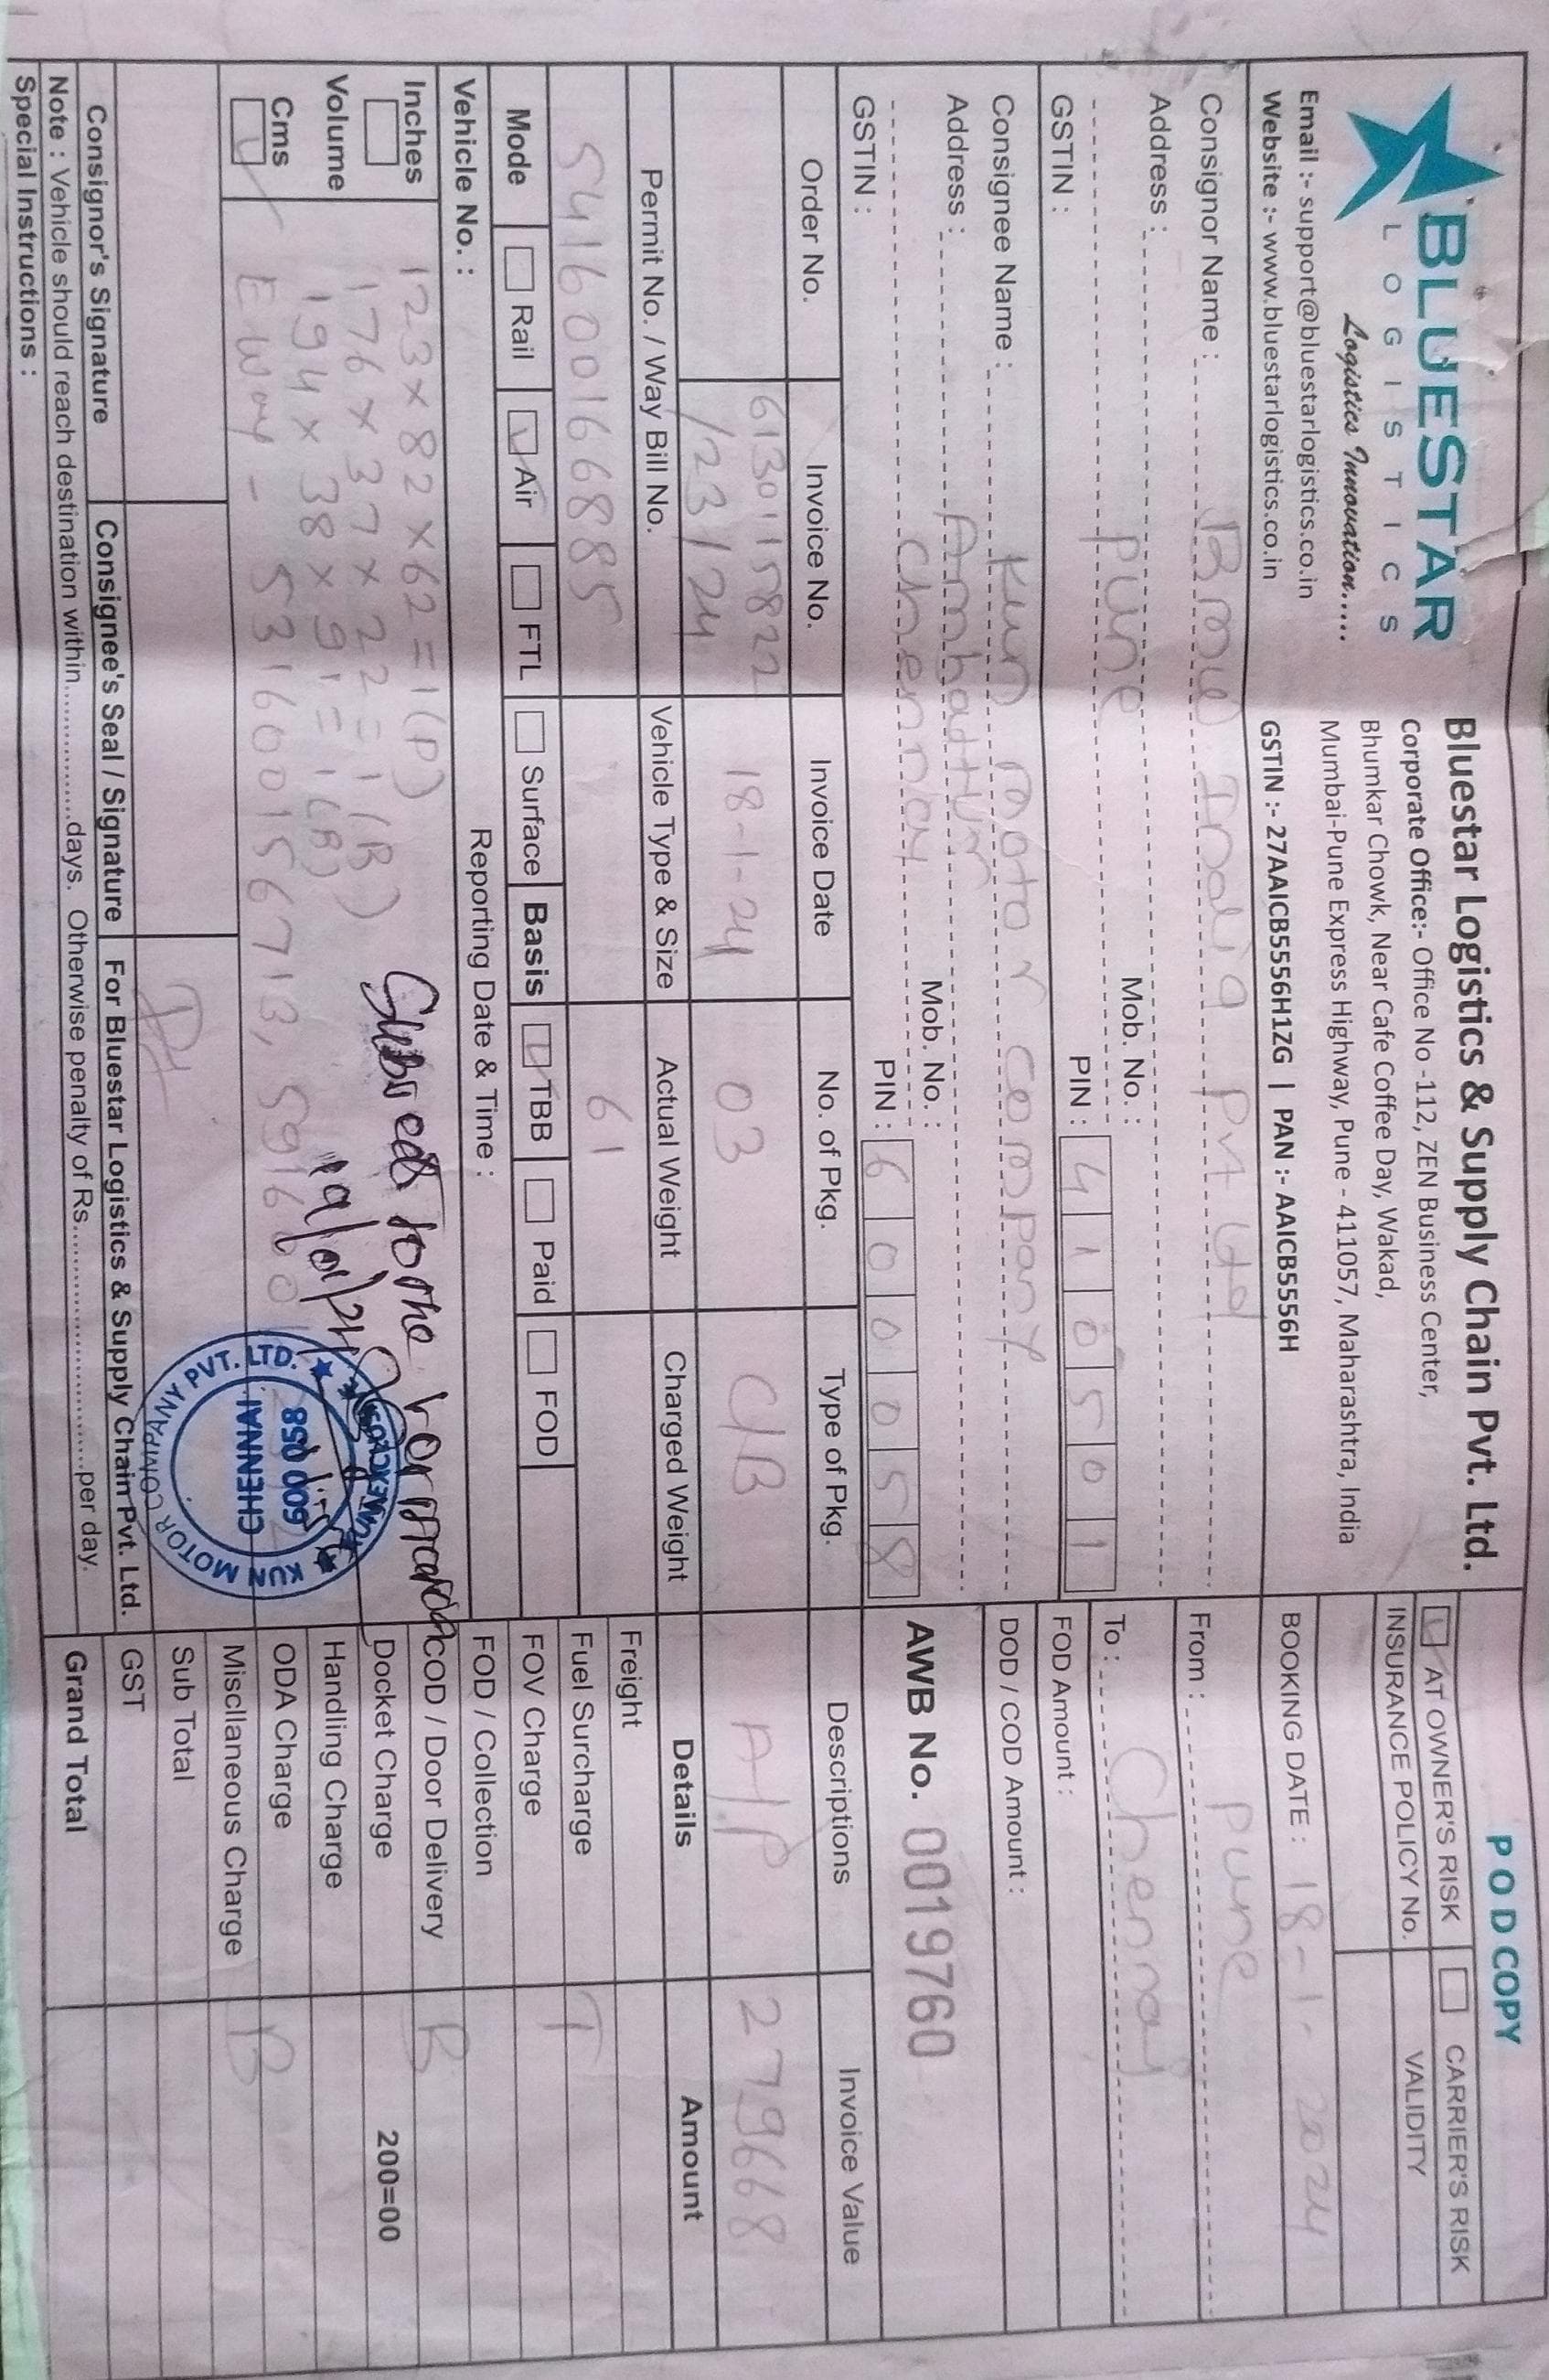 BLUESTAR
LOGISTICS
Logistics Innovation.....
Email :- support@bluestarlogistics.co.in
Website :- www.bluestarlogistics.co.in
Bluestar Logistics & Supply Chain Pvt. Ltd.
Corporate Office:- Office No -112, ZEN Business Center,
Bhumkar Chowk, Near Cafe Coffee Day, Wakad,
Mumbai-Pune Express Highway, Pune - 411057, Maharashtra, India
GSTIN :- 27AAICB5556H1ZG | PAN :- AAICB5556H
POD COPY
AT OWNER'S RISK CARRIER'S RISK
INSURANCE POLICY No. VALIDITY
BOOKING DATE : 18-1-2024
From : pune
To : Chennai
FOD Amount :
DOD / COD Amount :
AWB No. 0019760
Consignor Name : Bmw India Pvt Ltd
Address :
pune Mob. No. :
GSTIN : PIN : 410501
Consignee Name : Kun motor company
Address : Ambattur
Chennay Mob. No. :
GSTIN : PIN : 600058
Order No. Invoice No. Invoice Date No. of Pkg. Type of Pkg. Descriptions Invoice Value
6130115822 18-1-24 03 C/B A/P 279668
/23/24
Permit No. / Way Bill No. Vehicle Type & Size Actual Weight Charged Weight
541600166885 61
Mode Rail Air FTL Surface Basis TBB Paid FOD
Vehicle No. : Reporting Date & Time :
Inches
Volume
Cms
123x82x62=1(P)
176x37x22=1(B)
194x38x91=1(B)
E way - 531600156713, 5916001
to the
19/01/24
KUN MOTOR COMPANY PVT. LTD.
KUN EXCLUSIVE
CHENNAI
600 058
Details Amount
Freight
Fuel Surcharge T
FOV Charge
FOD / Collection
COD / Door Delivery B
Docket Charge 200=00
Handling Charge
ODA Charge B
Miscllaneous Charge
Sub Total
GST
Grand Total
Consignor's Signature Consignee's Seal / Signature For Bluestar Logistics & Supply Chain Pvt. Ltd.
Note : Vehicle should reach destination within.................days. Otherwise penalty of Rs..............................per day.
Special Instructions :